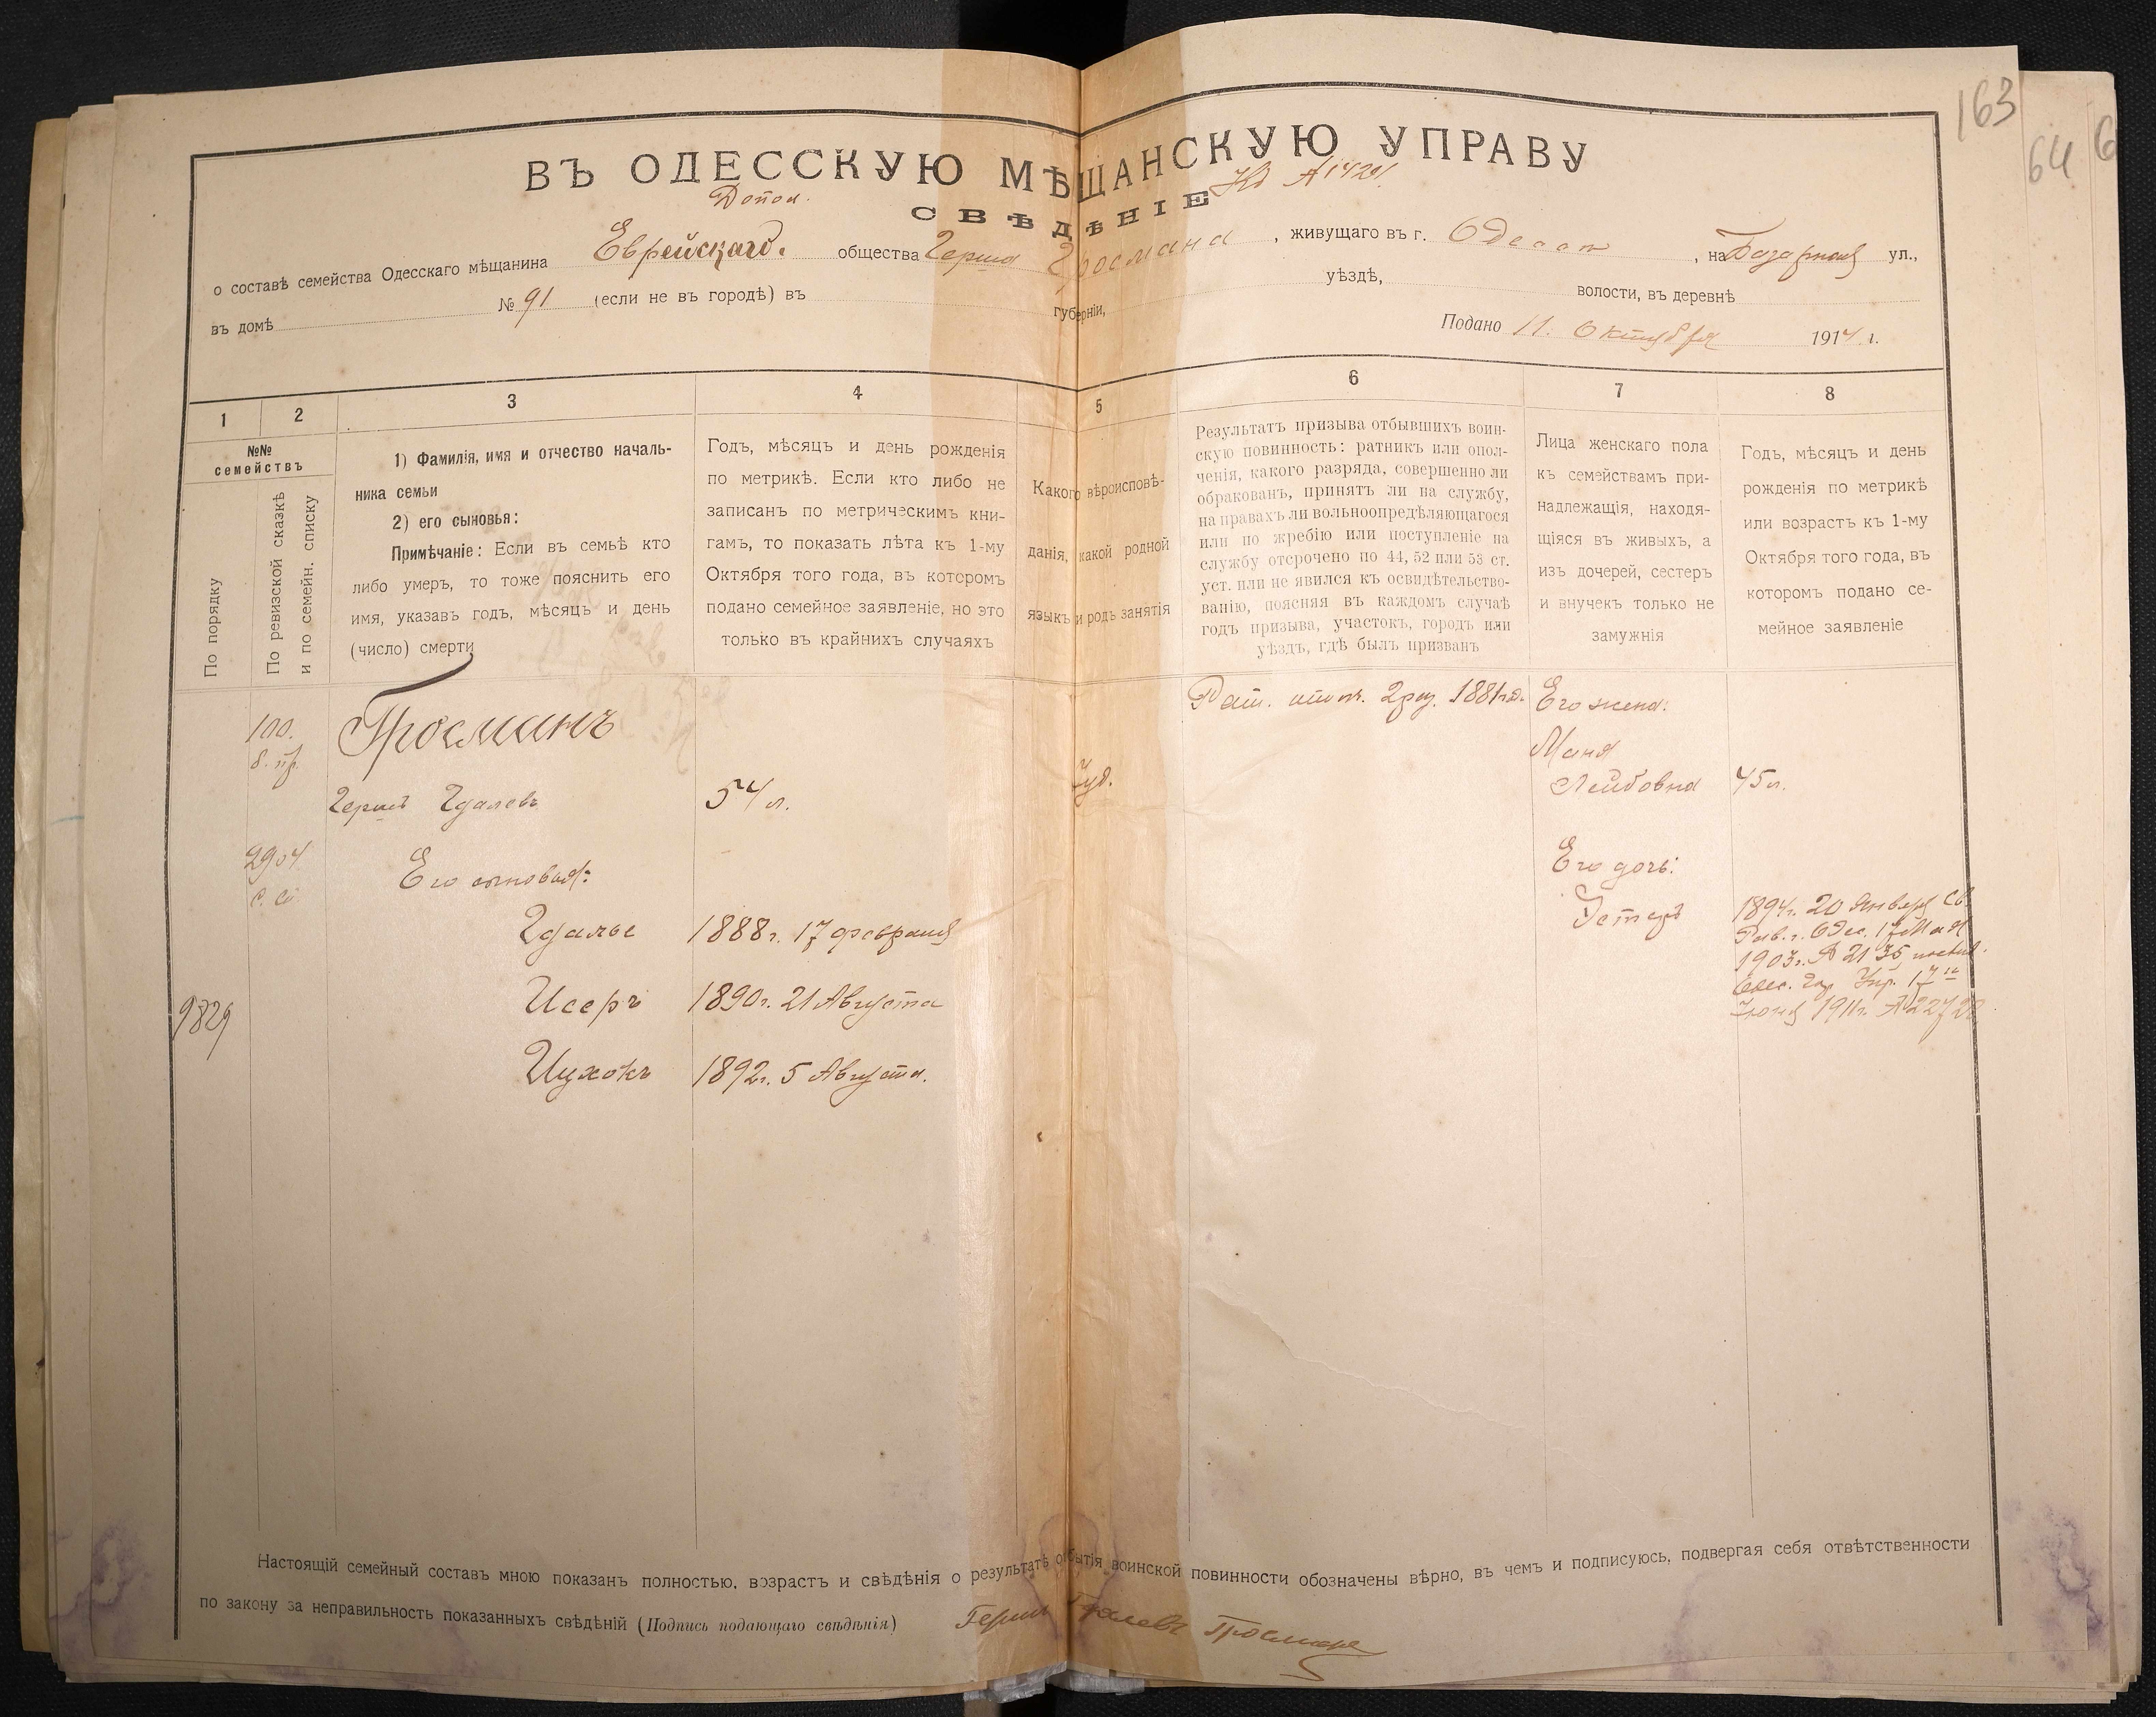 163
64
ВЪ ОДЕССКУЮ МѢЩАНСКУЮ УПРАВУ
Допол.
СВѢДѢНІЕ
о составѣ семейства Одесскаго мѣщанина Еврейскаго общества Герша Гросмана, живущаго въ г. Одессѣ, на Базарной ул.,
въ домѣ № 91 (если не въ городѣ) въ губерніи, уѣздѣ, волости, въ деревнѣ
Подано 11. Октября 1914 г.
1
2
3
4
5
6
7
8
№№ семействъ
По порядку
По ревизской сказкѣ
и по семейн. списку
1) Фамилія, имя и отчество началь-
ника семьи
2) его сыновья:
Примѣчаніе: Если въ семьѣ кто
либо умеръ, то тоже пояснить его
имя, указавъ годъ, мѣсяцъ и день
(число) смерти
Годъ, мѣсяцъ и день рожденія
по метрикѣ. Если кто либо не
записанъ по метрическимъ кни-
гамъ, то показать лѣта къ 1-му
Октября того года, въ которомъ
подано семейное заявленіе, но это
только въ крайнихъ случаяхъ
Какого вѣроисповѣ-
данія, какой родной
языкъ и родъ занятія
Результатъ призыва отбывшихъ воин-
скую повинность: ратникъ или опол-
ченія, какого разряда, совершенно ли
обракованъ, принятъ ли на службу,
на правахъ ли вольноопредѣляющагося
или по жребію или поступленіе на
службу отсрочено по 44, 52 или 53 ст.
уст. или не явился къ освидѣтельство-
ванію, поясняя въ каждомъ случаѣ
годъ призыва, участокъ, городъ или
уѣздъ, гдѣ былъ призванъ
Лица женскаго пола
къ семействамъ при-
надлежащія, находя-
щіяся въ живыхъ, а
изъ дочерей, сестеръ
и внучекъ только не
замужнія
Годъ, мѣсяцъ и день
рожденія по метрикѣ
или возрастъ къ 1-му
Октября того года, въ
которомъ подано се-
мейное заявленіе
100. Гросманъ Рат. 2 раз. 1881 Его жена:
б. пр.
Маня
Гершъ Гдалевъ 54 л. Іуд. Лейбовна 45 л.
2904
с. с.
Его сыновья: Его дочь:
Гдалье 1888 г. 17 февраля Эстеръ 1894 г. 20 Января св.
Рав. г. Одес. 17 Мая
1903 г. № 2135
Исеръ 1890 г. 21 Августа Одес. Гор. Упр. 17
9829 Іюня 1911 г.
Ицхокъ 1892 г. 5 Августа.
Настоящій семейный составъ мною показанъ полностью, возрастъ и свѣдѣнія о результатѣ отбытія воинской повинности обозначены вѣрно, въ чемъ и подписуюсь, подвергая себя отвѣтственности
по закону за неправильность показанныхъ свѣдѣній (Подпись подающаго свѣдѣнія) Гершъ Гдалевъ Гросманъ